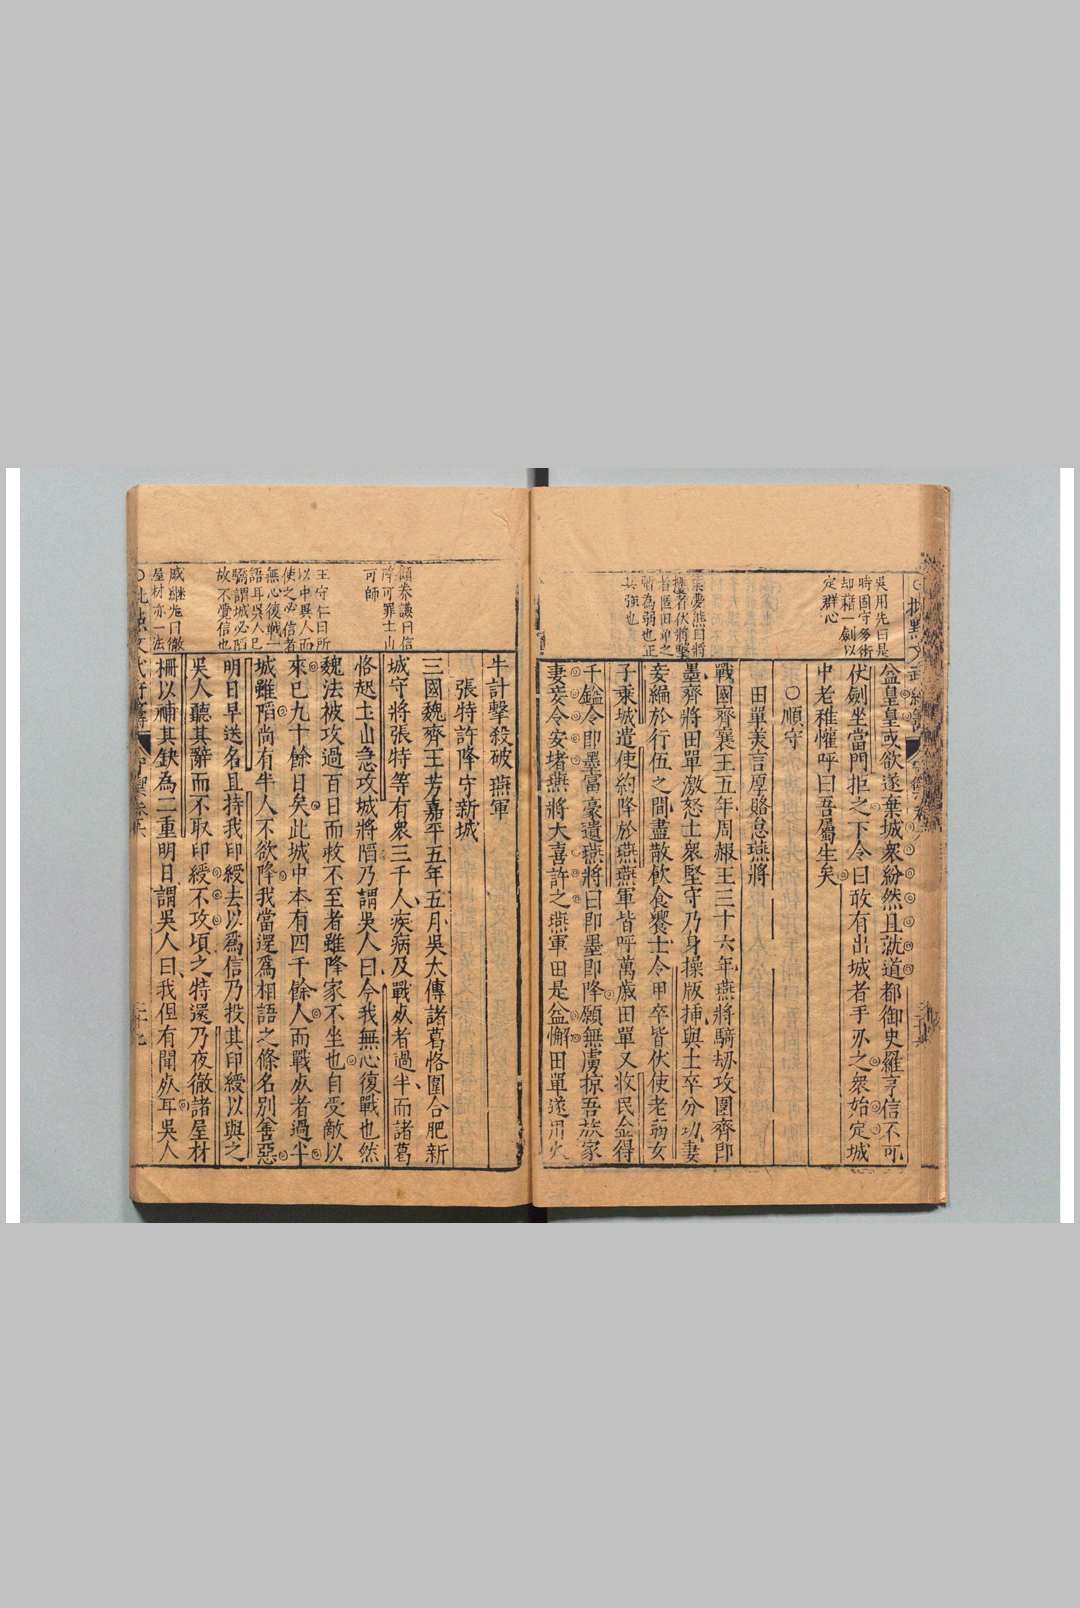 吳用先曰是
時圍守多術
却藉一劍以
定群心
益皇皇或欲遂棄城衆紛然且就道都御史羅亨信不可
伏劍坐當門拒之下令曰敢有出城者手刃之衆始定城
中老稚懽呼曰吾屬生矣
○順守
田單美言厚賂怠燕將
戰國齊襄王五年周赧王三十六年燕將騎劫攻圍齊即
墨齊將田單激怒士衆堅守乃身操版插與士卒分功妻
妾編於行伍之間盡散飲食饗士令甲卒皆伏使老弱女
子乘城遣使約降於燕燕軍皆呼萬歲田單又收民金得
千鎰令即墨富豪遺燕將曰即墨即降願無虜掠吾族家
妻妾令安堵燕將大喜許之燕軍田是益懈田單遂用火
牛計擊殺破燕軍
張特許降守新城
三國魏齊王芳嘉平五年五月吳太傅諸葛恪圍合肥新
城守將張特等有衆三千人疾病及戰死者過半而諸葛
恪起土山急攻城將陷乃謂吳人曰今我無心復戰也然
魏法被攻過百日而救不至者雖降家不坐也自受敵以
來已九十餘日矣此城中本有四千餘人而戰死者過半
城雖陷尚有半人不欲降我當還爲相語之條名別善惡
明日早送名且持我印綬去以爲信乃投其印綬以與之
吳人聽其辭而不取印綬不攻頃之特還乃夜徹諸屋材
柵以補其缺為二重明日謂吳人曰我但有鬬死耳吳人
可師
王守仁曰所
以中吳人而
使之必信者
無心復戰一
語耳吳人已
驕謂城必陷
故不覺信也
戚繼光曰徹
屋材亦一法